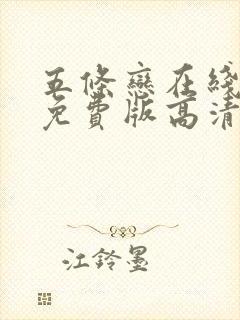 五條戀在綫
免費版高清
江鈴墨